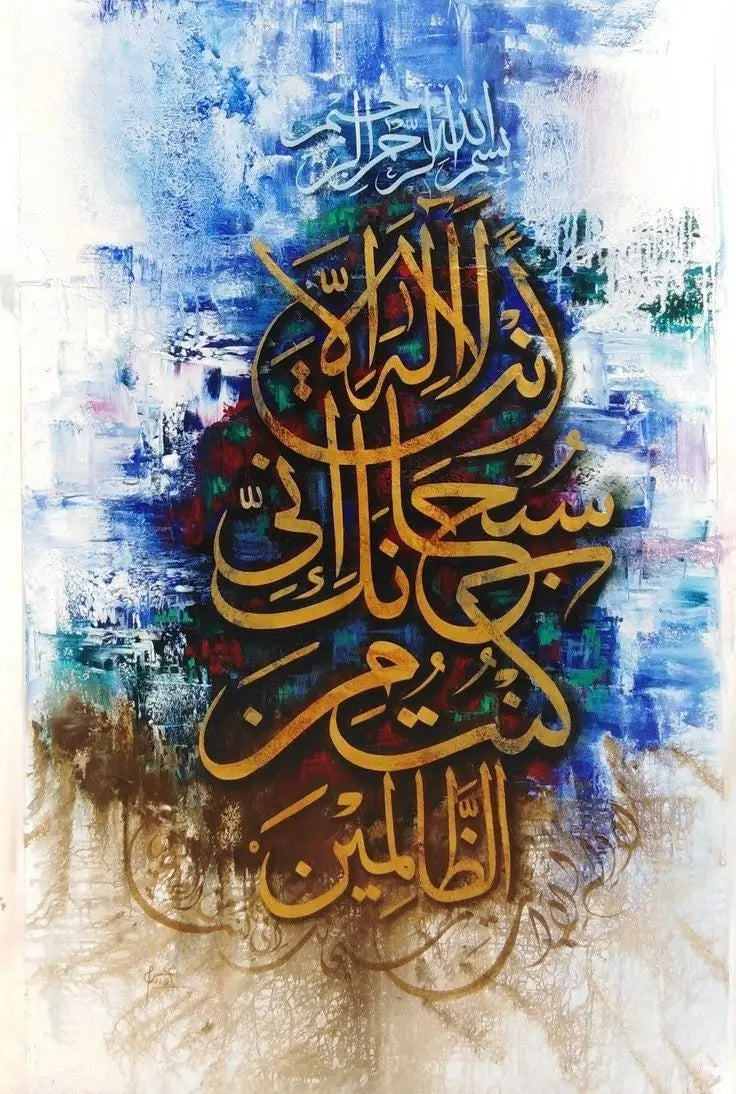 بسم الله الرحمن الرحيم
لَا إِلَهَ إِلَّا أَنْتَ
سُبْحَانَكَ إِنِّي
كُنْتُ مِنَ
الظَّالِمِيْنَ